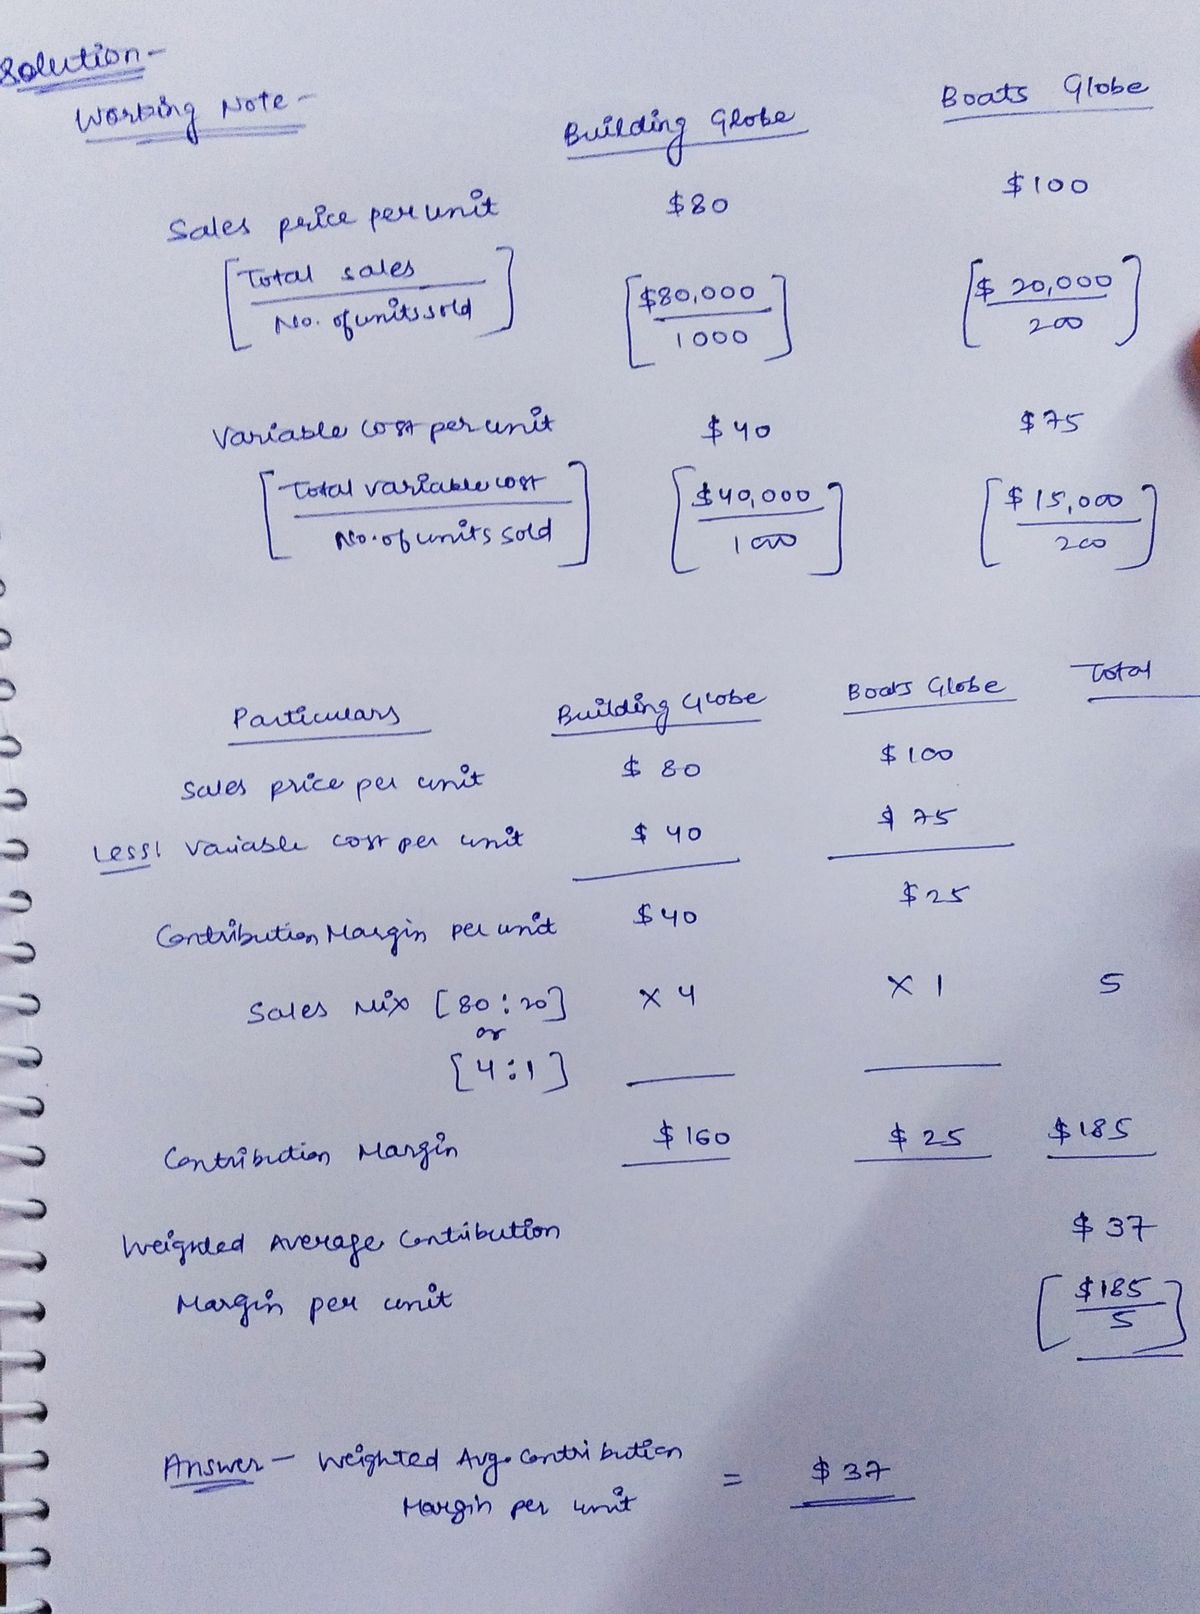 Solution-
Working Note-
Building Globe Boats Globe
Sales price per unit $80 $100
[Total sales / No. of units sold] [$80,000 / 1000] [$ 20,000 / 200]
Variable cost per unit $40 $75
[Total variable cost / No. of units sold] [$40,000 / 1000] [$ 15,000 / 200]
Particulars Building Globe Boats Globe Total
Sales price per unit $ 80 $ 100
Less: Variable cost per unit $ 40 $ 75
Contribution Margin per unit $40 $25
Sales Mix [80:20] x 4 x 1 5
or
[4:1]
Contribution Margin $ 160 $ 25 $185
Weighted Average Contribution $ 37
Margin per unit [$185 / 5]
Answer - Weighted Avg. Contribution
Margin per unit = $ 37